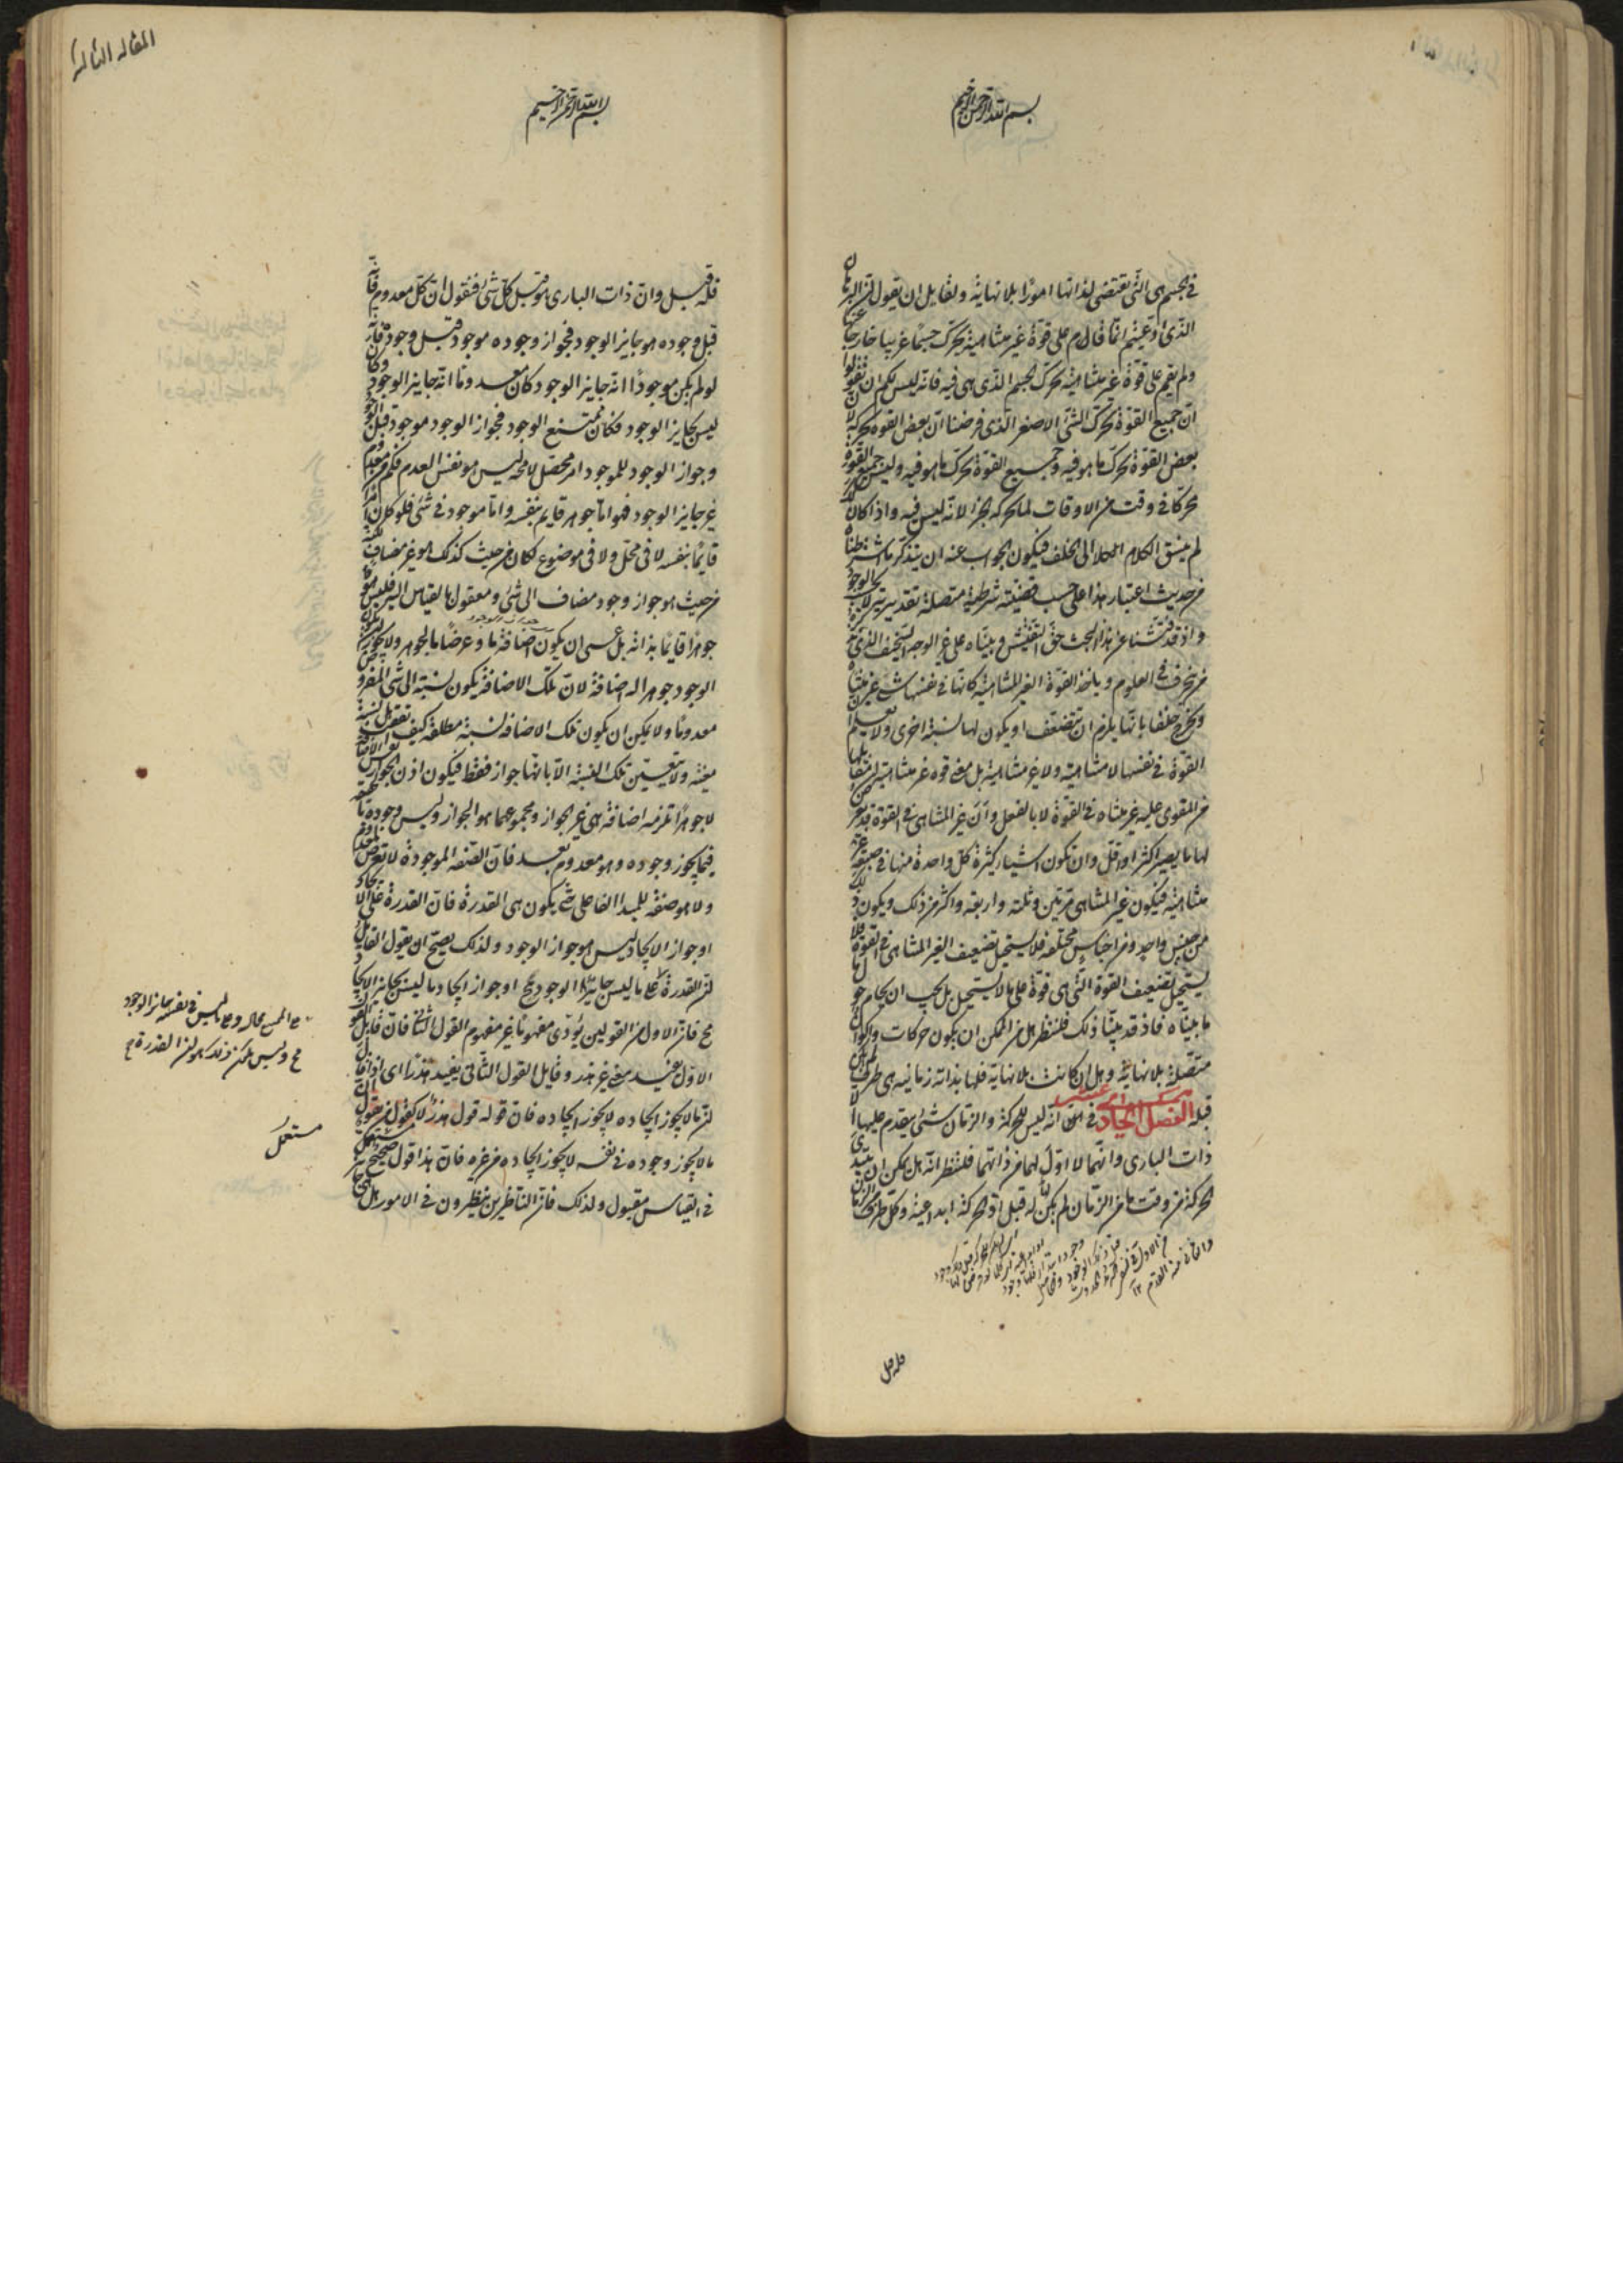 بسم الله الرحمن الرحيم
في الجسم هي التي تقتضى لذاتها امورًا بلا نهاية ولقايل ان يقول ان البرهان
الذى ادعيتم انما قام على قوة غير متناهية تحرك جسمًا غريبا خارجا عنها
ولم يقم على قوة غير متناهية تحرك الجسم الذى هي فيه فانه ليس لكم ان تقولوا
ان جميع القوة تحرك الشئ الاصغر الذى فرضنا ان بعض القوة يحركه لان
بعض القوة تحرك ما هو فيه وجميع القوة تحرك ما هو فيه وليس جميع القوة
محركا في وقت من الاوقات لما يحركه الجزء لانه ليس فيه واذا كان كذلك
لم ينسق الكلام الى الخلف فيكون الجواب عنه ان يتذكر ما شرطناه
من حديث اعتبار هذا على حسب قضية شرطية متصلة تقديرية لا بحسب الوجود
واذ قد فتشنا عن هذا البحث حق التفتيش وبيناه على غير الوجه السخيف الذى
من يخرف في العلوم وياخذ القوة الغير المتناهية كانها في نفسها شئ غير متناه
ويخرج خلفا بانها يلزم ان تتضعف او يكون لها نسبة اخرى ولا يعلم ان
القوة في نفسها لا متناهية ولا غير متناهية بل معنى قوة غير متناهية ان
من المقوى عليه غير متناه في القوة لا بالفعل وان غير المتناهى في القوة قد
لها ما يصير اكثر او اقل وان تكون اشياء كثيرة كل واحدة منها في
متناهية فيكون غير المتناهى مرتين وثلثة واربعة واكثر من ذلك ويكون ذلك
من جنس واحد ومن اجناس مختلفة فلا يستحيل تضعيف الغير المتناهى في القوة فلا
يستحيل تضعيف القوة التي هي قوة على ما لا يستحيل بل يجب ان
ما بيناه فاذ قد بينا ذلك فلننظر هل من الممكن ان يكون حركات واكوان
متصلة بلا نهاية وهل ان كانت بلا نهاية فلها بذاته زمانية هي طرف لم يكن
قبله الفصل الحادي عشر في انه ليس للحركة والزمان شئ يتقدم عليها الا
ذات البارى وانهما لا اول لهما من ذاتهما فلننظر انه هل يمكن ان تبتدى
الحركة من وقت ما من الزمان لم يكن له قبل او الحركة ابداعية وكل طرف
فله قبل
المقالة الثالثة
بسم الله الرحمن الرحيم
فله قبل وان ذات البارى هو قبل كل شئ فنقول ان كل معدوم فانه
قبل وجوده هو جايز الوجود فجواز وجوده موجود قبل وجوده فانه
لو لم يكن موجودًا انه جايز الوجود كان معدومًا انه جايز الوجود وكان
ليس بجايز الوجود فكان ممتنع الوجود فجواز الوجود موجود قبل الوجود
وجواز الوجود للموجود امر محصل لا محة ليس هو نفس العدم فكم من معدوم
غير جايز الوجود فهو اما جوهر قايم بنفسه واما موجود في شئ فلو كان امرًا
قايمًا بنفسه لا في محل ولا في موضوع لكان من حيث كذلك هو غير مضاف لكنه
من حيث هو جواز وجود مضاف الى شئ ومعقول بالقياس اليه فليس هو
جوهرًا قايمًا بذاته بل عسى ان يكون اضافة ما وعرضًا بالجوهر ولا يجوز ان يكون
الوجود جوهرا له اضافة لان تلك الاضافة يكون نسبته الى شئ المفروض
معدومًا ولا يمكن ان يكون تلك الاضافة نسبة مطلقة كيف اتفق بل نسبة
معينة ولا تتعين تلك النسبة الا بانها جواز فقط فيكون اذن الجواز نفس الاضافة
لا جوهرًا تلزمه اضافة هي غير الجواز ومجموعهما هو الجواز وليس وجوده
فيما يجوز وجوده وهو معدوم بعد فان الصفة الموجودة لا تعرض لمعدوم
ولا هو صفة للمبدا الفاعلى حتى يكون هي القدرة فان القدرة على الايجاد
او جواز الايجاد ليس هو جواز الوجود ولذلك يصح ان يقول القايل
ان القدرة على ما ليس جايز الوجود مح او جواز ايجاد ما ليس بجايز الايجاد
مح فان الاول من القولين يؤدى مفهومًا غير مفهوم القول الثانى فان قايل القول
الاول يفيد معنى غير هذر وقايل القول الثانى يفيد هذرًا اى اذا قال
ان ما لا يجوز ايجاده لا يجوز ايجاده فان قوله قول هذر لا كقول من يقول ان
ما لا يجوز وجوده في نفسه لا يجوز ايجاده من غيره فان هذا قول صحيح مستعمل
في القياس مقبول ولذلك فان الناظرين ينظرون في الامور هل هى
مستعمل